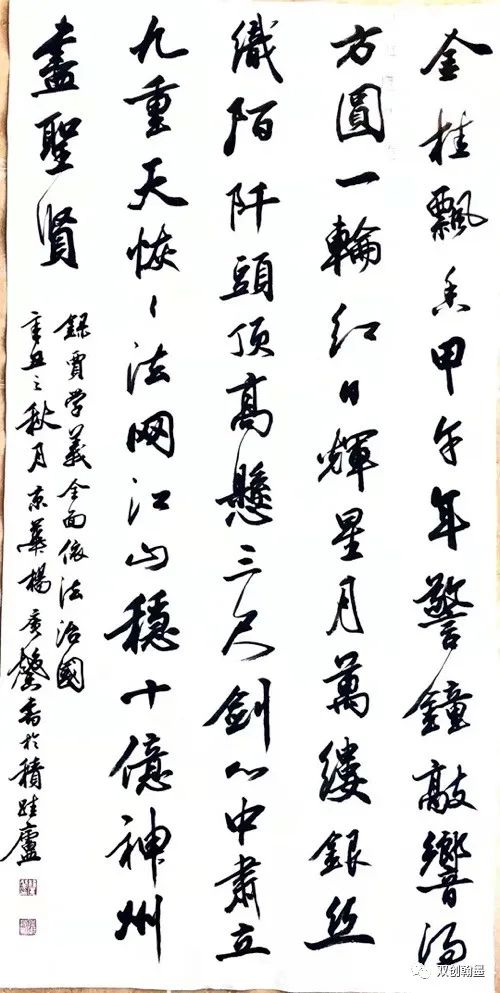 金桂飄香甲午年警鐘敲響
方圓一輪紅日輝星月萬縷銀絲
織陌阡頭頂高懸三尺劍心中肅立
九重天恢〻法网江山穩十億神州
盡聖賢
録賈学義全面依法治國
辛丑之秋月京華楊廣馨書於積跬廬
双创翰墨